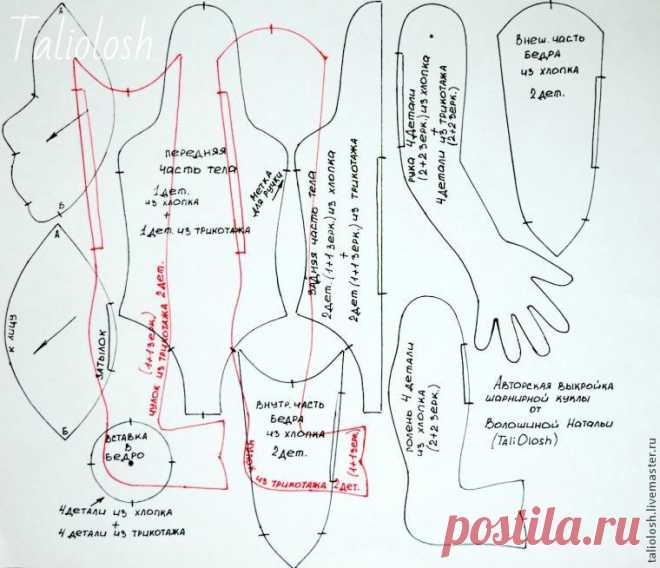 Taliolosh
А
Б
А
К ЛИЦУ
ЗАТЫЛОК
Б
ПЕРЕДНЯЯ
ЧАСТЬ ТЕЛА
1 ДЕТ.
ИЗ ХЛОПКА
+
1 ДЕТ. ИЗ ТРИКОТАЖА
МЕТКА
ДЛЯ РУЧКИ
ЗАДНЯЯ ЧАСТЬ ТЕЛА
2 ДЕТ. (1+1 ЗЕРК.) ИЗ ХЛОПКА
+
2 ДЕТ (1+1 ЗЕРК.) ИЗ ТРИКОТАЖА
РУКА 4 ДЕТАЛИ
(2+2 ЗЕРК.) ИЗ ХЛОПКА
+
4 ДЕТАЛИ ИЗ ТРИКОТАЖА
(2+2 ЗЕРК.)
ВНЕШ. ЧАСТЬ
БЕДРА
ИЗ ХЛОПКА
2 ДЕТ.
ЧУЛОК ИЗ ТРИКОТАЖА 2 ДЕТ.
(1+1 ЗЕРК.)
ВСТАВКА
В
БЕДРО
4 ДЕТАЛИ ИЗ ХЛОПКА
+
4 ДЕТАЛИ ИЗ ТРИКОТАЖА
ВНУТР. ЧАСТЬ
БЕДРА
ИЗ ХЛОПКА
2 ДЕТ.
ИЗ ТРИКОТАЖА 2 ДЕТ.
(1+1 ЗЕРК)
ГОЛЕНЬ 4 ДЕТАЛИ
ИЗ ХЛОПКА
(2+2 ЗЕРК.)
АВТОРСКАЯ ВЫКРОЙКА
ШАРНИРНОЙ КУКЛЫ
ОТ
ВОЛОШИНОЙ НАТАЛЬИ
(TaliOlosh)
postila.ru
taliolosh.livemaster.ru